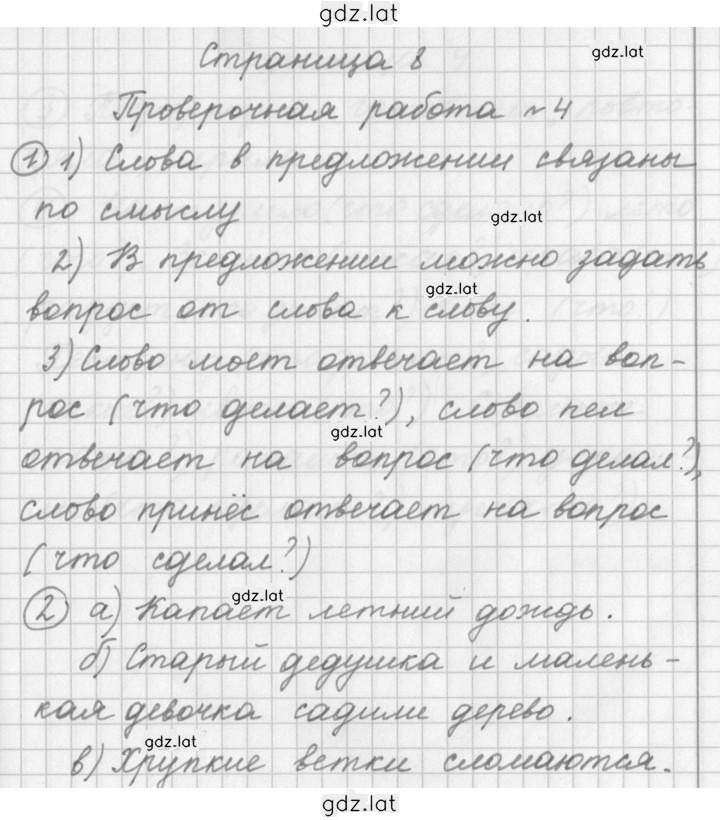 gdz.lat
Страница 8
gdz.lat
Проверочная работа №4
1 1) Слова в предложении связаны
по смыслу
gdz.lat
2) В предложении можно задать
gdz.lat
вопрос от слова к слову.
3) Слово моет отвечает на воп-
рос (что делает?), слово пел
gdz.lat
отвечает на вопрос (что делал?),
слово принёс отвечает на вопрос
(что сделал?)
gdz.lat
2 а) Капает летний дождь.
б) Старый дедушка и малень-
кая девочка садили дерево.
gdz.lat
в) Хрупкие ветки сломаются.
gdz.lat